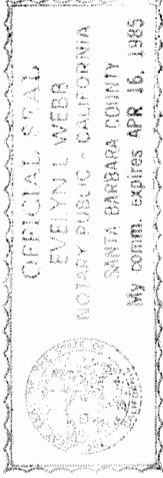 OFFICIAL SEAL
EVELYN L WEBB
NOTARY PUBLIC - CALIFORNIA
SANTA BARBARA COUNTY
My comm. expires APR 16, 1985